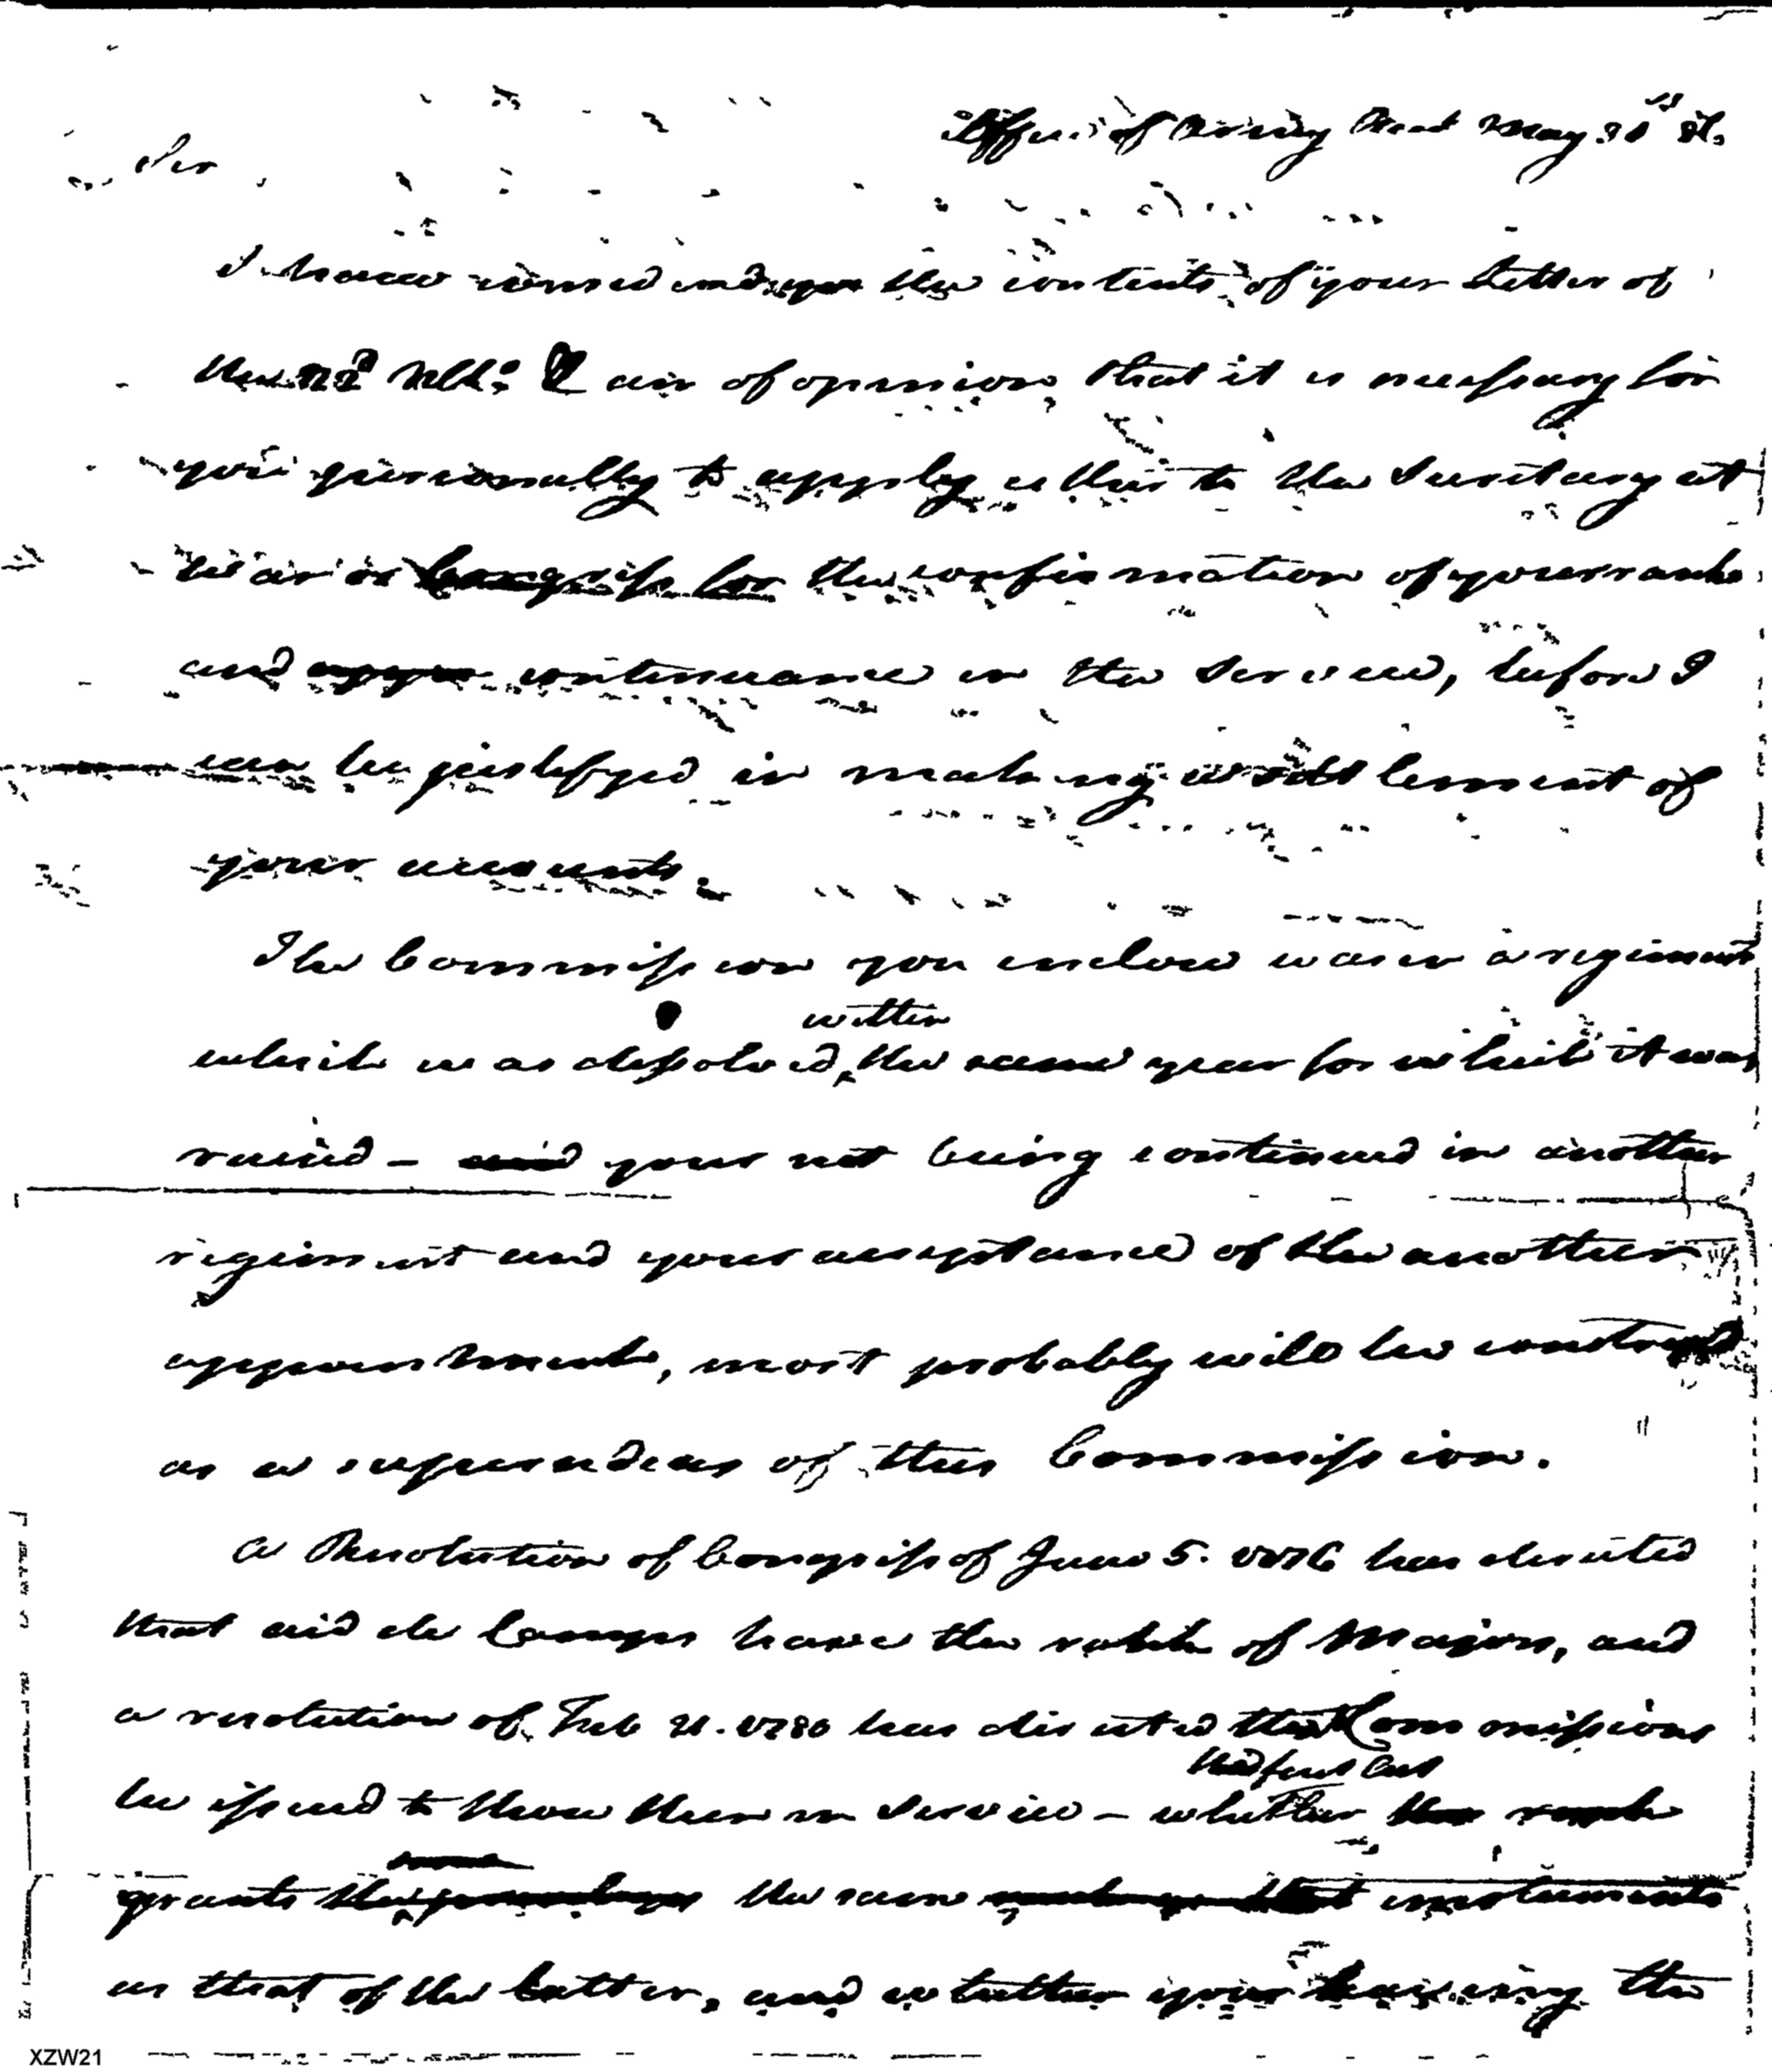 Office of Army Acct May 31st 86
Sir
I have considered the contents of your Letter of
the 22d Ulto: I am of opinion, that it is necessary for
you personally to apply either to the Secretary at
War or Congress for the confirmation of your rank
and continuance in the Service, before I
can be justifyed in making a settlement of
your accounts.
The Commission you enclose was in a regiment
within
which was dissolved, the same year for which it was
raised – and your not being continued in another
regiment and your acceptance of the another
appointment, most probably will be construed
as a supersedeas of this Commission.
A Resolution of Congress of June 5. 1776 has directed
that aid de Camps have the rank of Majors, and
a resolution of Feb 21. 1780 has directed that Commissions
the first Act
be issued to those then in Service – whether the rank
grants the the same emoluments
as that of the latter, and whether your having the
XZW21